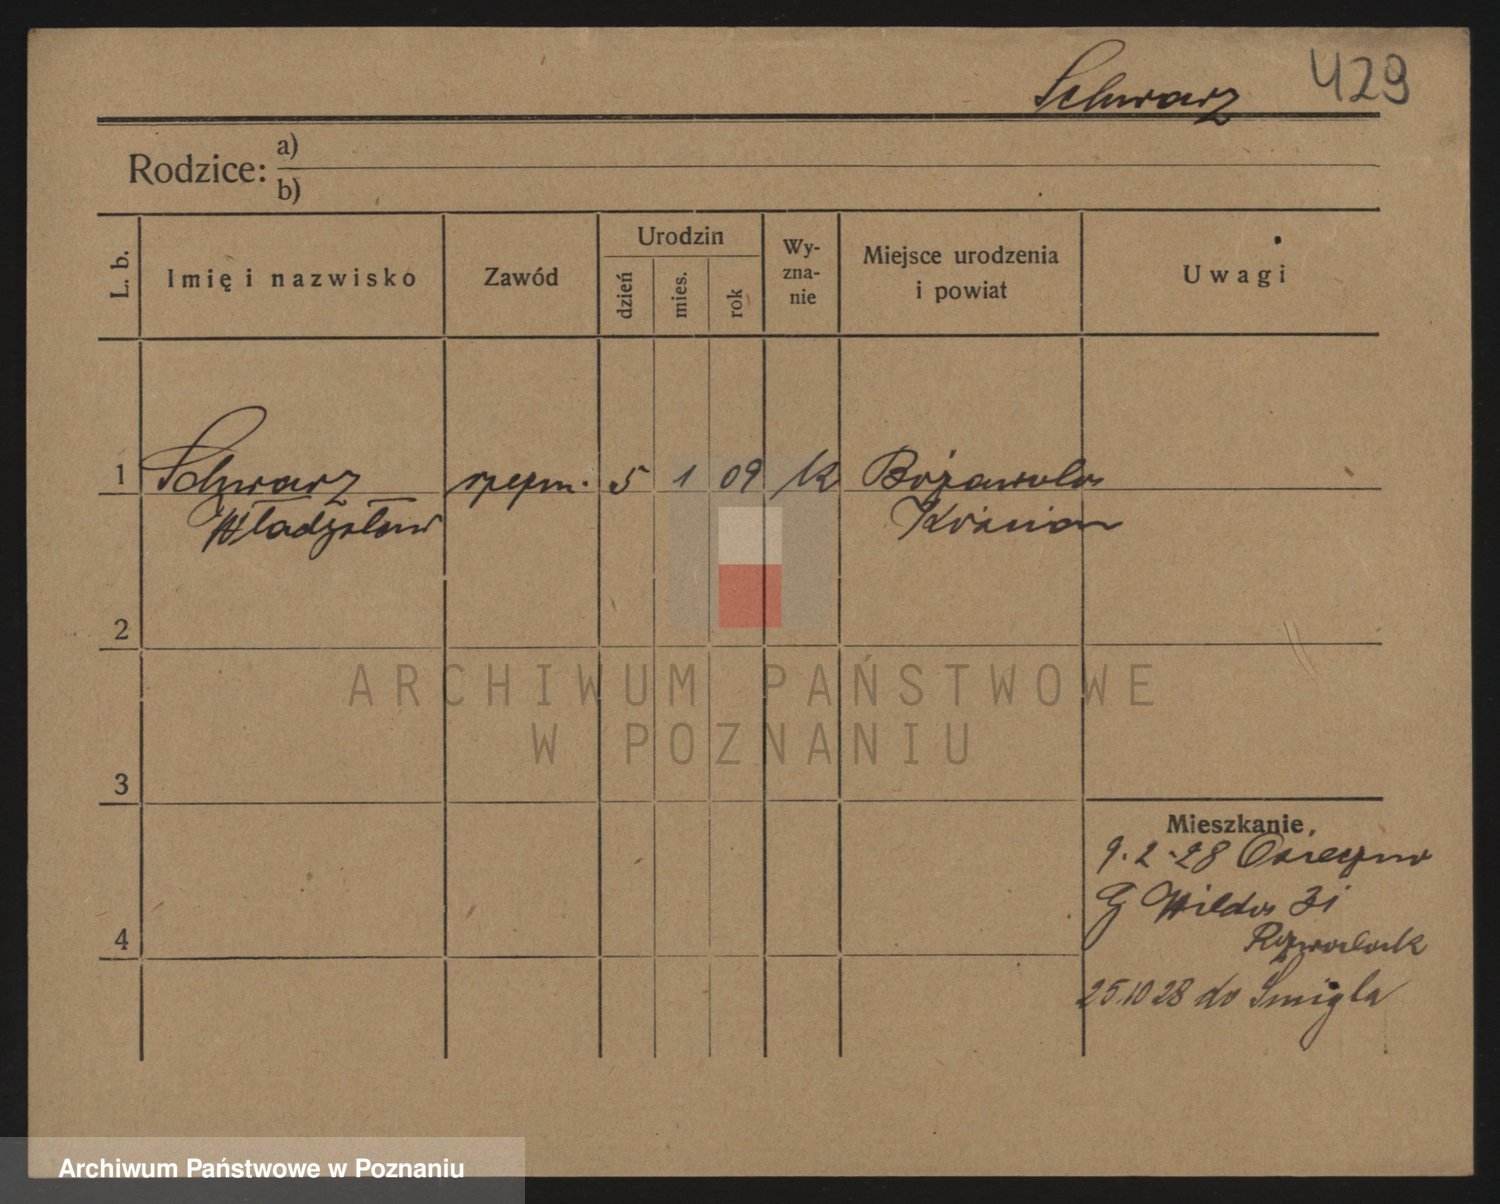 Schwarz 429
Rodzice: a)
b)
L. b. Imię i nazwisko Zawód Urodzin dzień mies. rok Wy-zna-nie Miejsce urodzenia i powiat Uwagi
1 Schwarz rzeźn. 5 1 09 K Bożawola
Władysław Kościan
2
3
4
Mieszkanie
9.2.28 Osieczno
G Wilda 31
25.10 28 do Śmigla
ARCHIWUM PAŃSTWOWE
W POZNANIU
Archiwum Państwowe w Poznaniu